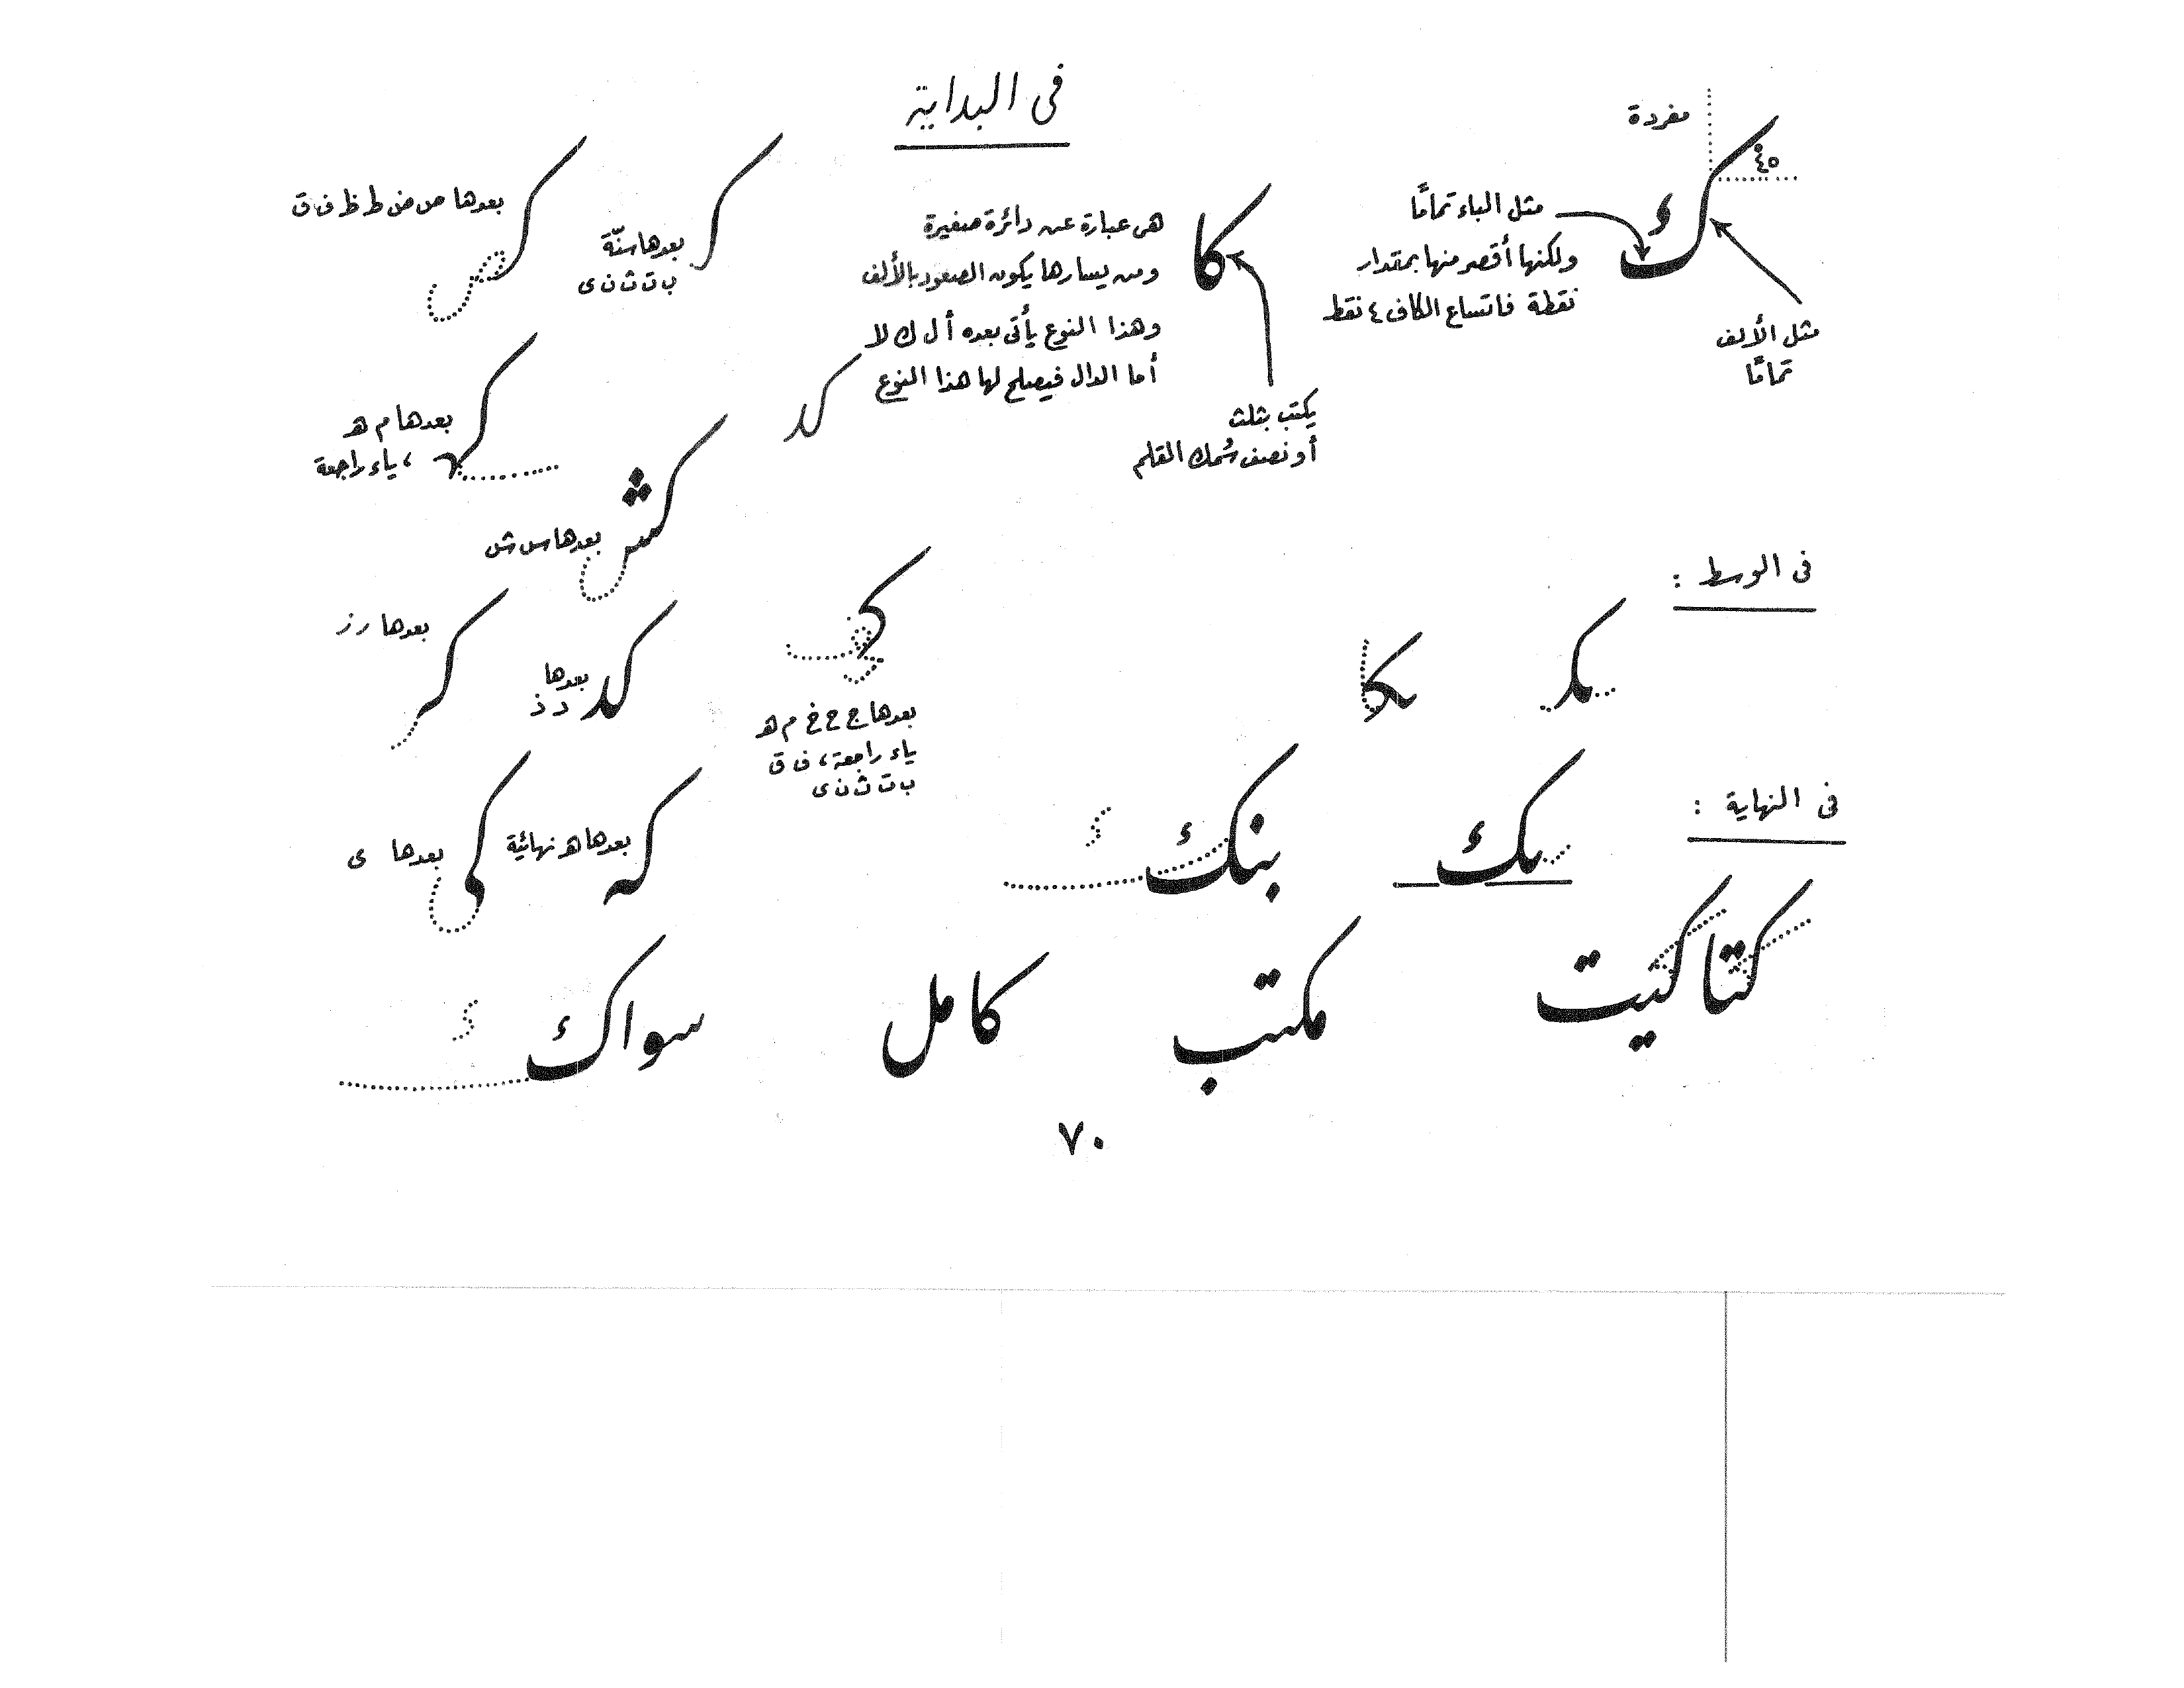 فى البداية
مفردة
٤٥°
ك
مثل الباء تمامًا
ولكنها أقصر منها بمقدار
نقطة فاتساع الكاف ٤ نقط
مثل الألف
تمامًا
كا
هى عبارة عن دائرة صغيرة
ومن يسارها يكون الصعود بالألف
وهذا النوع يأتى بعده أ ل ك لا
أما الدال فيصلح لها هذا النوع
كد
يكتب بثلث
أو نصف سُمك القلم
بعدها سنّة
ب ت ث ن ى
بعدها ص ض ط ظ ف ق
بعدها م هـ
، ياء راجعة
كش
بعدها س ش
بعدها ج ح خ م هـ
ياء راجعة ، ف ق
ب ت ث ن ى
كد
بعدها
د ذ
كر
بعدها ر ز
كه
بعدها هـ نهائية
كى
بعدها ى
فى الوسط :
فى النهاية :
بنك
كتاكيت
مكتب
كامل
سواك
٧٠